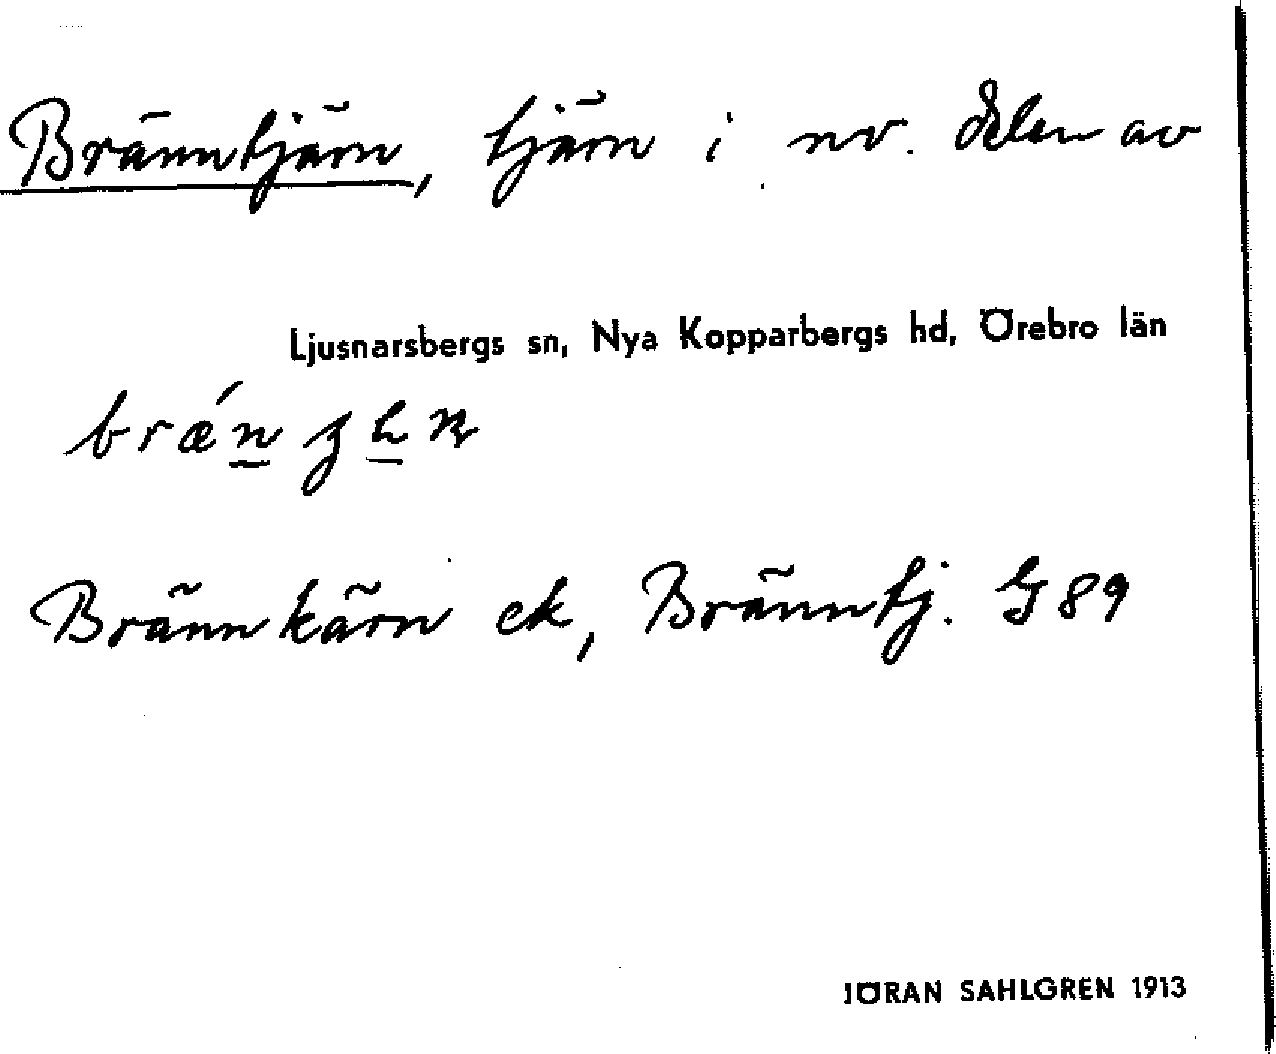 Bränntjärn, tjärn i nv. delen av
Ljusnarsbergs sn, Nya Kopparbergs hd, Örebro län
Brännkärn ek, Bränntj. G 89
JÖRAN SAHLGREN 1913